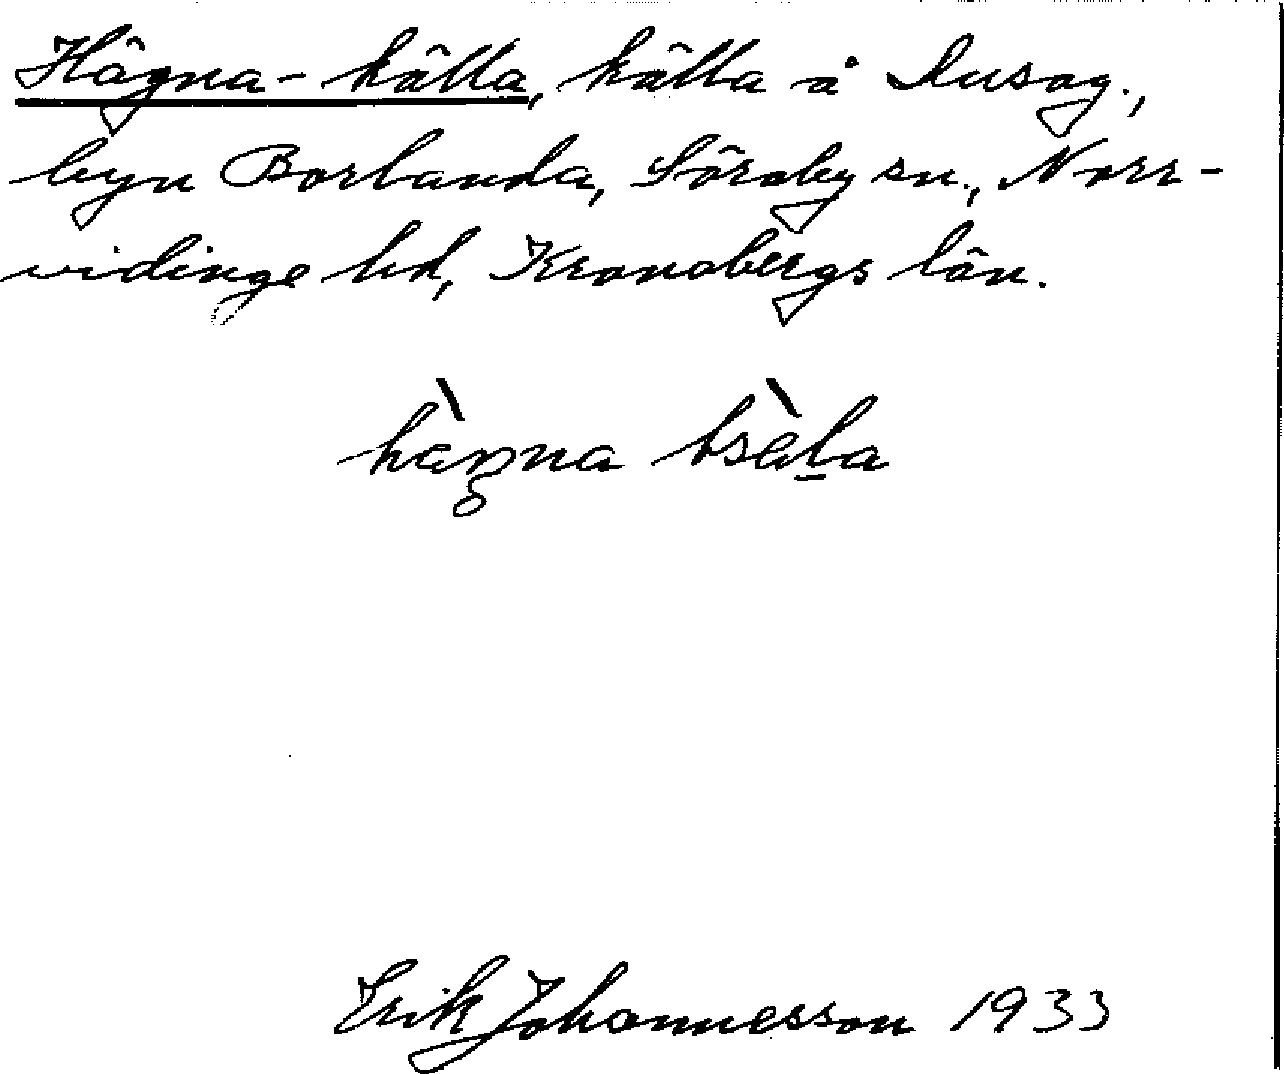 Hägna-källa, källa å Ausag.,
byn Borlanda, Söraby sn., Norr-
vidinge hd, Kronobergs län.
hàŋna tsæ̀la
Erik Johannesson 1933